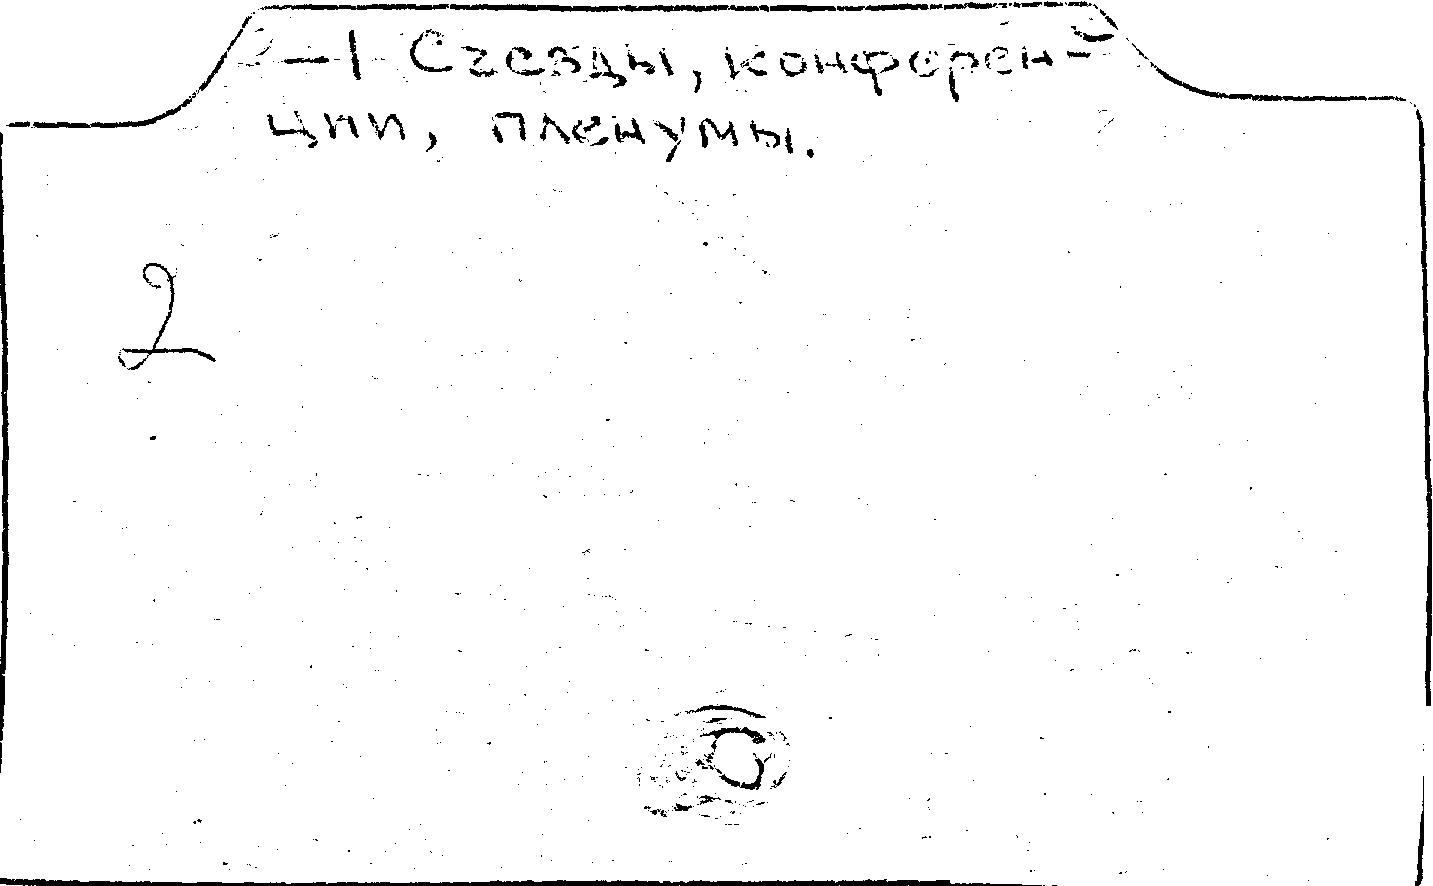 -1 Съезды, конферен-
ции, пленумы.
2